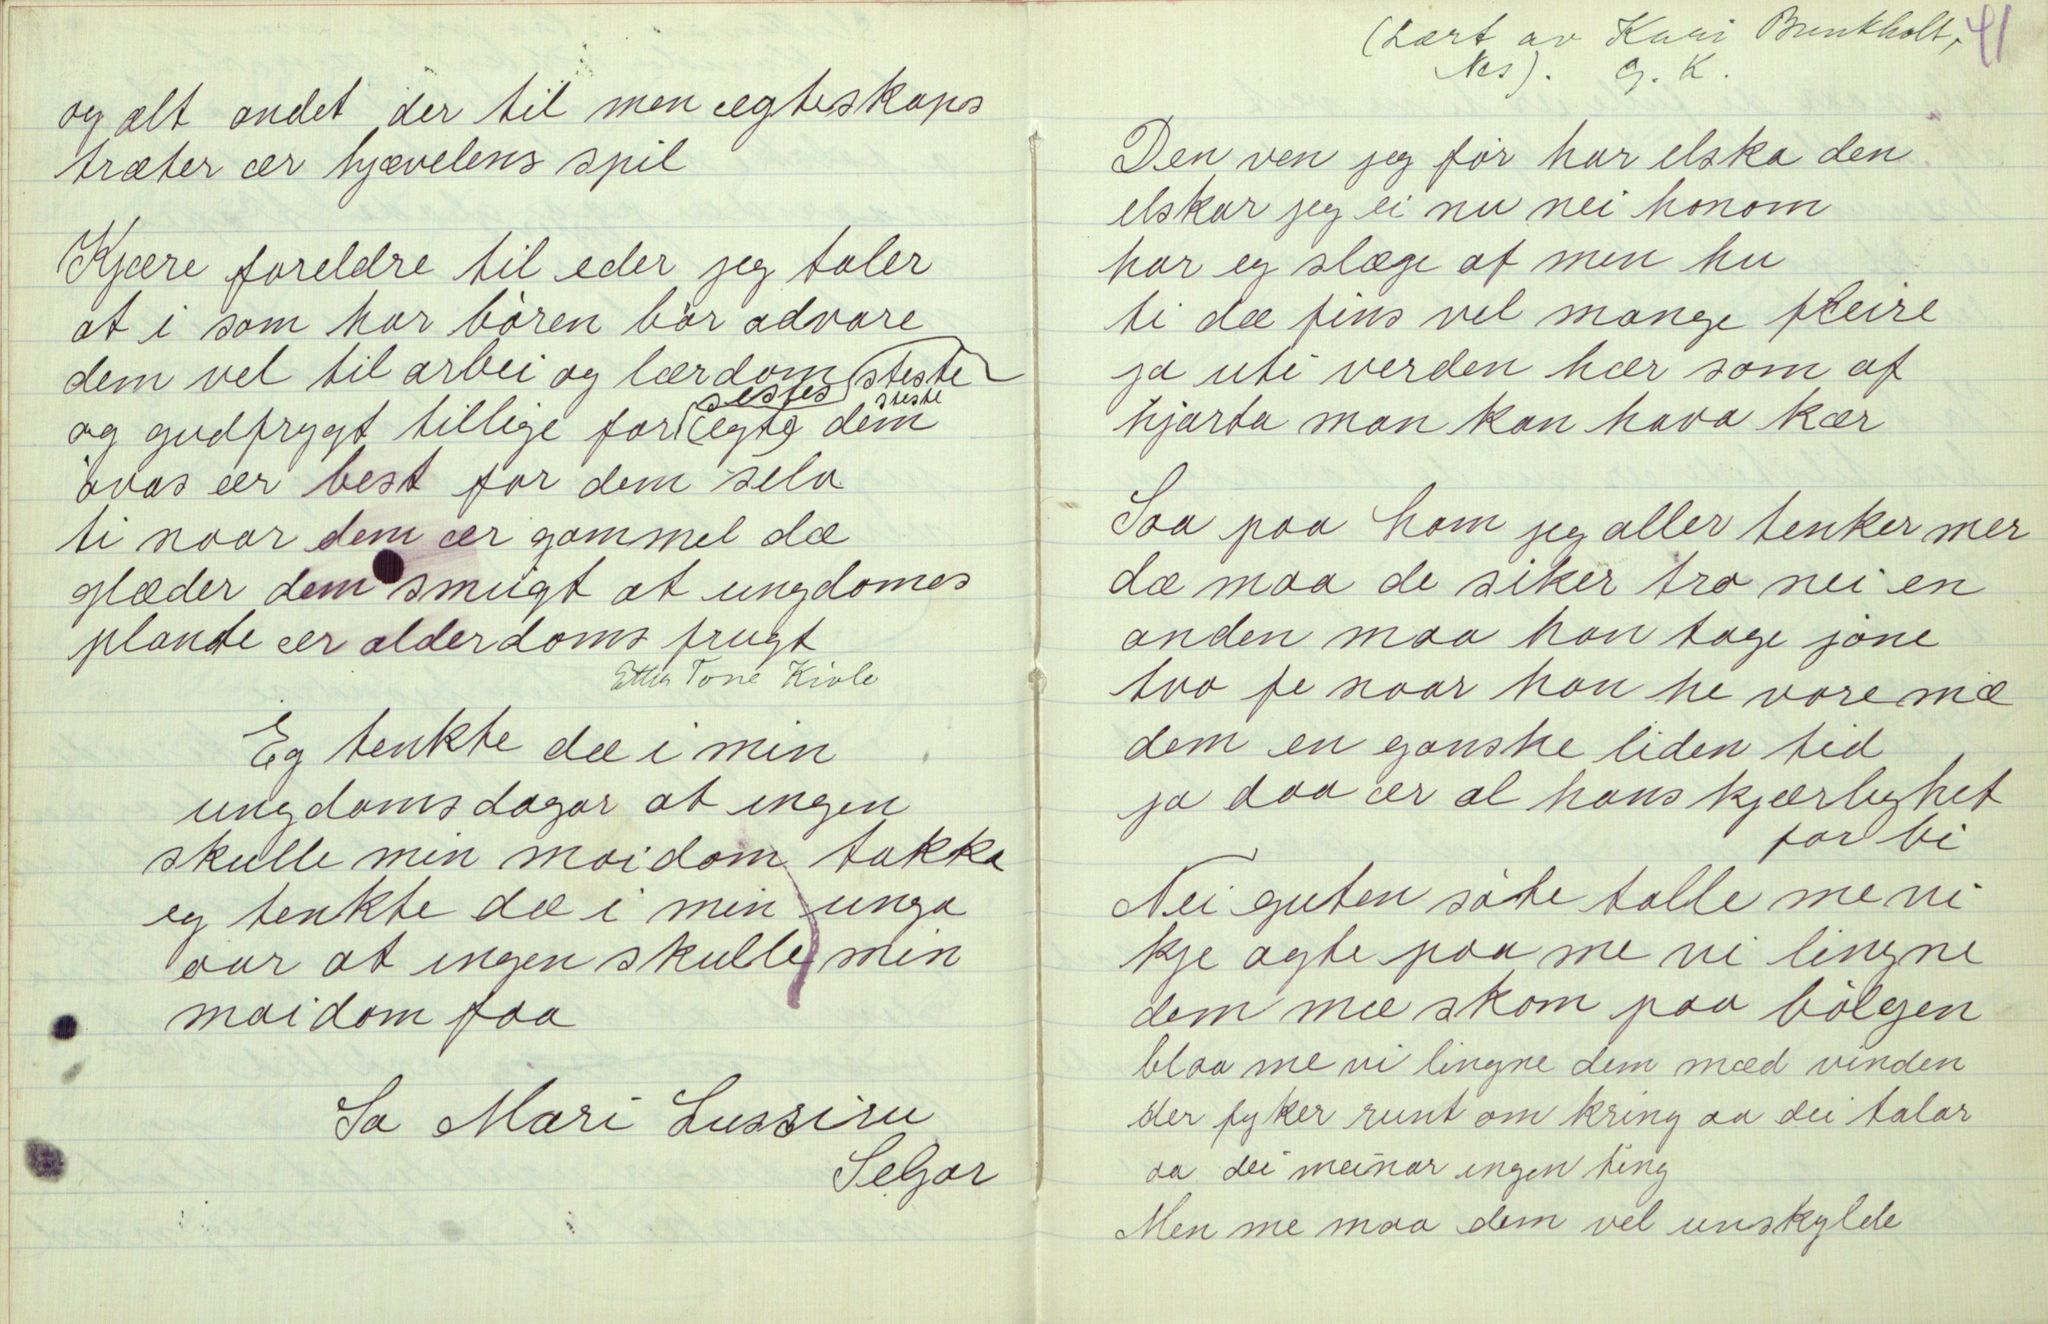 og alt andet der til men ægteskaps
træter ær hjævelens spil
Kjære foreldre til eder jeg taler
at i som har bören bör advare
dem vel til arbei og lærdom steste
sestes steste
og gudfrygt tillige for ægte dem
övas ær best for dem selv
ti naar dem ær gammel dæ
glæder dem smügt at ungdomes
plante ær alderdoms frugt
Etter Tone Kivle
Eg tenkte dæ i min
ungdomsdagar at ingen
skulle min moidom takka
eg tenkte dæ i min unga
aar at ingen skulle min
moidom faa
Sa Mari Lussiru
Selgar
(Lært av Kari Bunkholt, 41
Nes). G. K.
Den ven jeg för har elska den
elskar jeg ei nu nei honom
har eg slæge af men hu
ti dæ fins vel mange fleire
ja uti verden hær som af
hjarta man kan hava kær
Saa paa ham jeg aller tenker mer
dæ maa de siker tro nei en
anden maa han tage jöne
tvo fe naar han he vore mæ
dem en ganske liden tid
ja daa ær al hans kjærleghet
for bi
Nei guten söte talle me vi
kje agte paa me vi lingne
dem mæ skom paa bölgen
blaa me vi lingne dem mæd vinden
der fyker runt om kring aa dei talar
aa dei meinar ingen ting
Men me maa dem vel unskylde